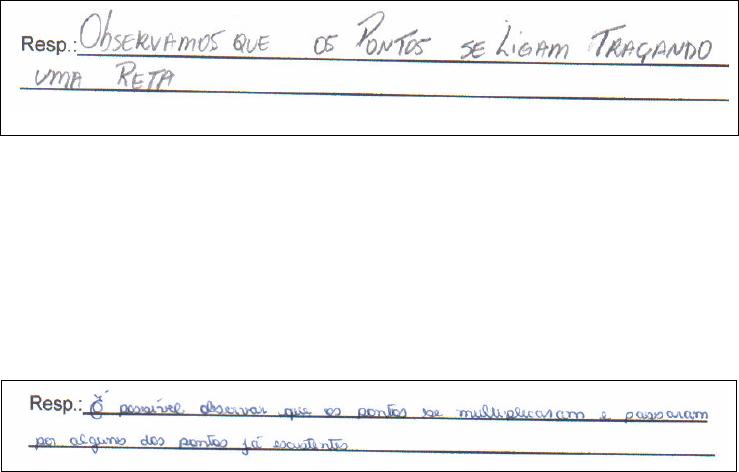 Resp.: Observamos que os Pontos se Ligam Traçando
uma Reta
Resp.: É possível observar que os pontos se multiplicaram e passaram
por alguns dos pontos já existentes